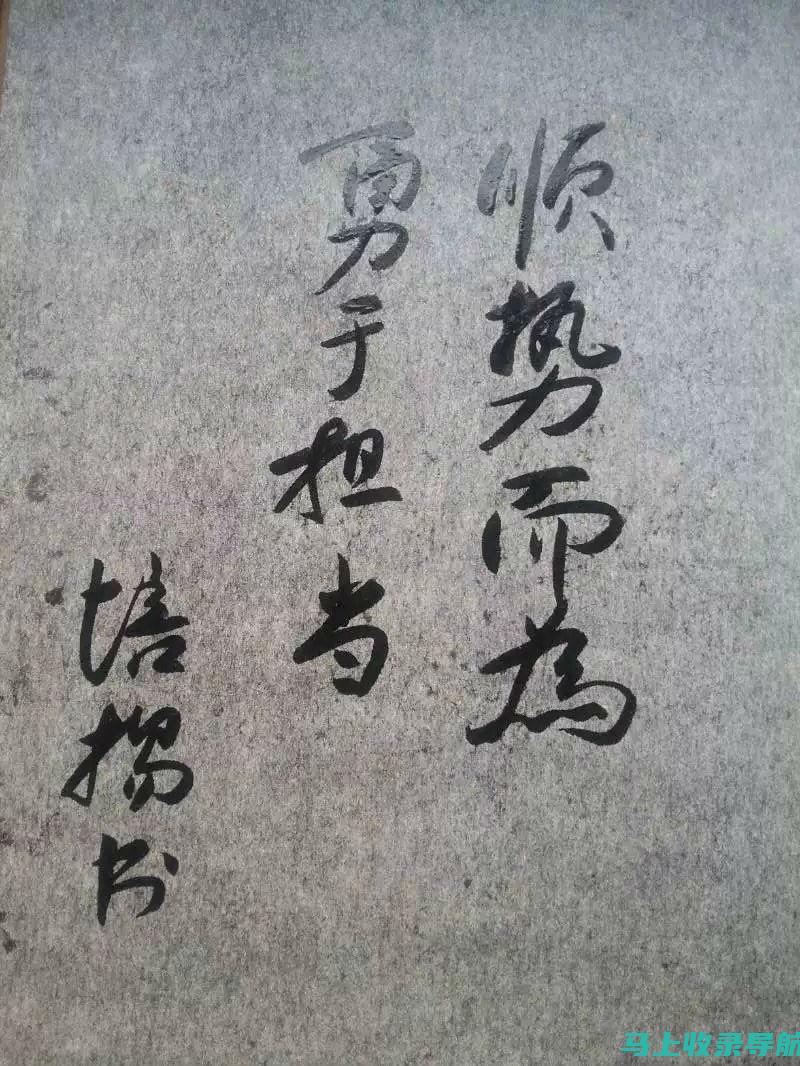 顺势而為
勇于担当
培揚书
马上收录导航